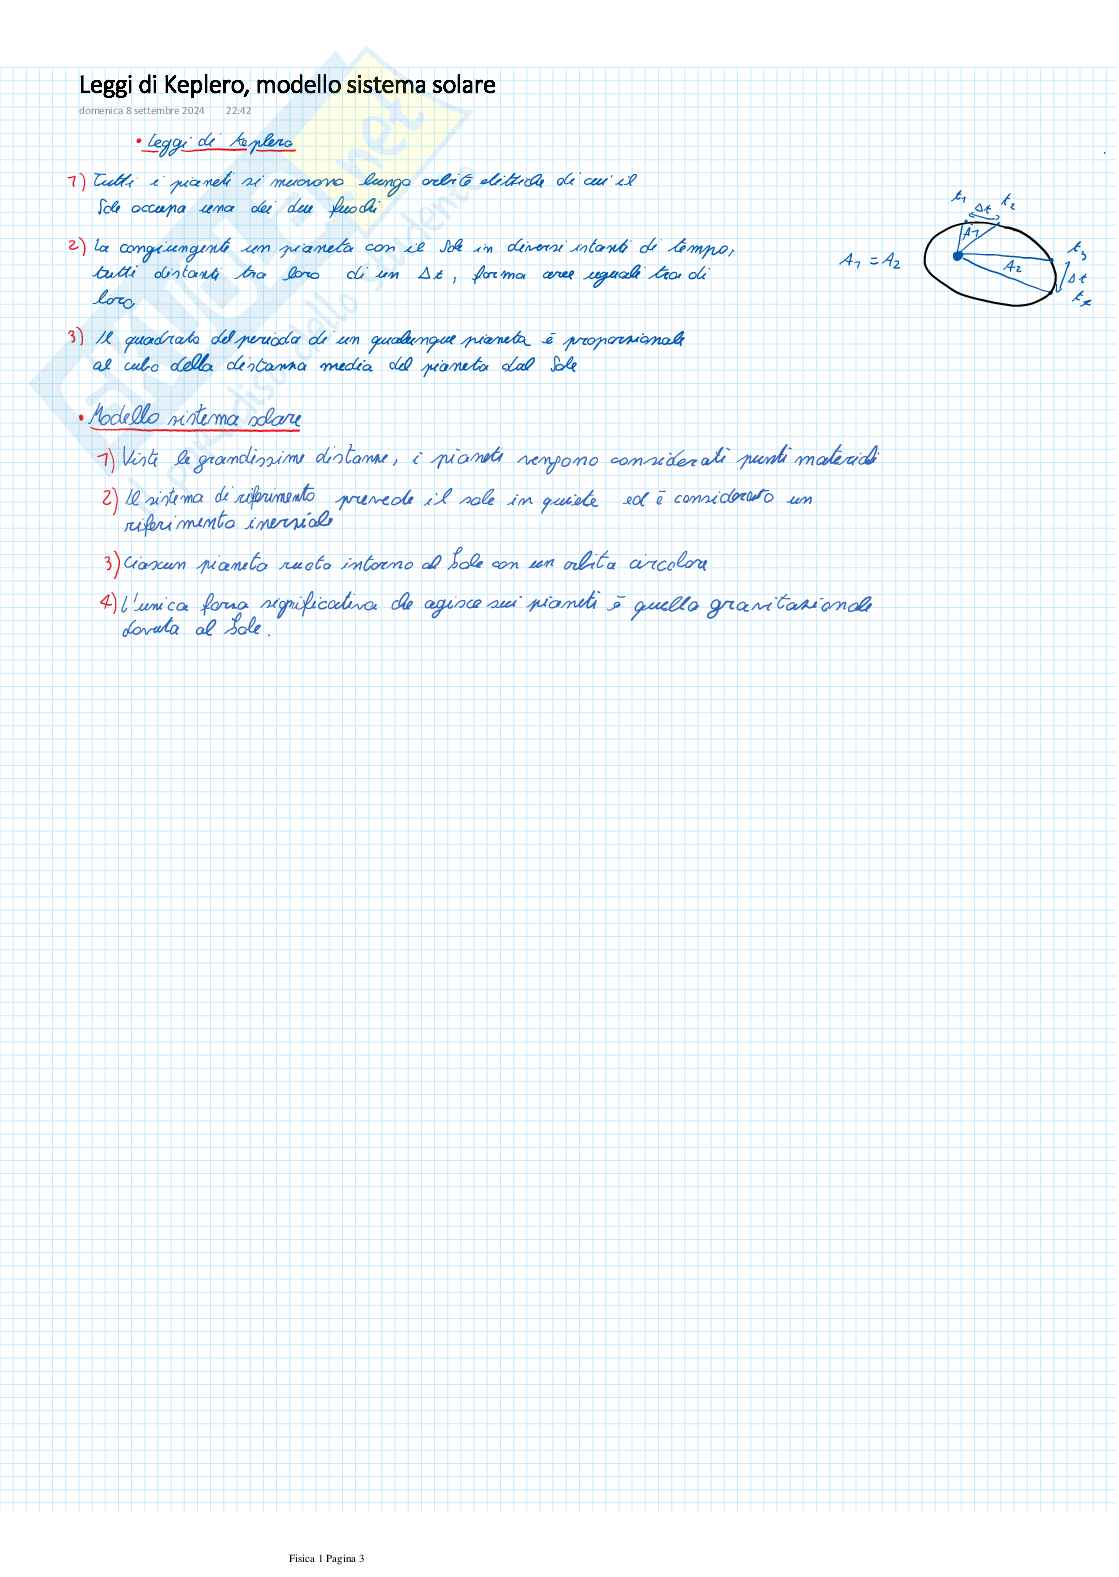 Leggi di Keplero, modello sistema solare
domenica 8 settembre 2024 22:42
• Leggi di Keplero
1) Tutti i pianeti si muovono lungo orbite ellittiche di cui il
Sole occupa uno dei due fuochi
2) La congiungente un pianeta con il Sole in diversi istanti di tempo,
tutti distanti tra loro di un Δt, forma aree uguali tra di
loro
A1 = A2
t1 Δt t2
A1
t3
A2
Δt
3) Il quadrato del periodo di un qualunque pianeta è proporzionale
al cubo della distanza media del pianeta dal Sole
• Modello sistema solare
1) Viste le grandissime distanze, i pianeti vengono considerati punti materiali
2) Il sistema di riferimento prevede il sole in quiete ed è considerato un
riferimento inerziale
3) Ciascun pianeta ruota intorno al Sole con un orbita circolare
4) L'unica forza significativa che agisce sui pianeti è quella gravitazionale
dovuta al Sole.
Fisica 1 Pagina 3